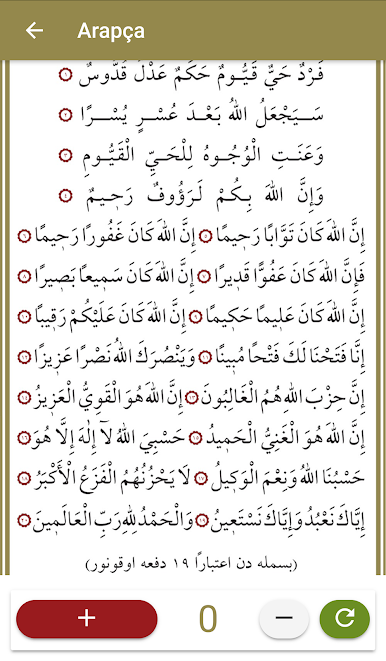 Arapça
فَرْدٌ حَيٌّ قَيُّومٌ حَكَمٌ عَدْلٌ قُدُّوسٌ ۝
سَيَجْعَلُ اللهُ بَعْدَ عُسْرٍ يُسْرًا ۝
وَعَنَتِ الْوُجُوهُ لِلْحَيِّ الْقَيُّومِ ۝
وَإِنَّ اللهَ بِكُمْ لَرَؤُوفٌ رَحِيمٌ ۝
إِنَّ اللهَ كَانَ تَوَّابًا رَحِيمًا ۝ إِنَّ اللهَ كَانَ غَفُورًا رَحِيمًا ۝
فَإِنَّ اللهَ كَانَ عَفُوًّا قَدِيرًا ۝ إِنَّ اللهَ كَانَ سَمِيعًا بَصِيرًا ۝
إِنَّ اللهَ كَانَ عَلِيمًا حَكِيمًا ۝ إِنَّ اللهَ كَانَ عَلَيْكُمْ رَقِيبًا ۝
إِنَّا فَتَحْنَا لَكَ فَتْحًا مُبِينًا ۝ وَيَنْصُرَكَ اللهُ نَصْرًا عَزِيزًا ۝
إِنَّ حِزْبَ اللهِ هُمُ الْغَالِبُونَ ۝ إِنَّ اللهَ هُوَ الْقَوِيُّ الْعَزِيزُ ۝
إِنَّ اللهَ هُوَ الْغَنِيُّ الْحَمِيدُ ۝ حَسْبِيَ اللهُ لَآ إِلٰهَ إِلَّا هُوَ ۝
حَسْبُنَا اللهُ وَنِعْمَ الْوَكِيلُ ۝ لَا يَحْزُنُهُمُ الْفَزَعُ الْأَكْبَرُ ۝
إِيَّاكَ نَعْبُدُ وَإِيَّاكَ نَسْتَعِينُ ۝ وَالْحَمْدُ لِلهِ رَبِّ الْعَالَمِينَ ۝
(بسمله دن اعتبارًا ١٩ دفعه اوقونور)
+ 0 −